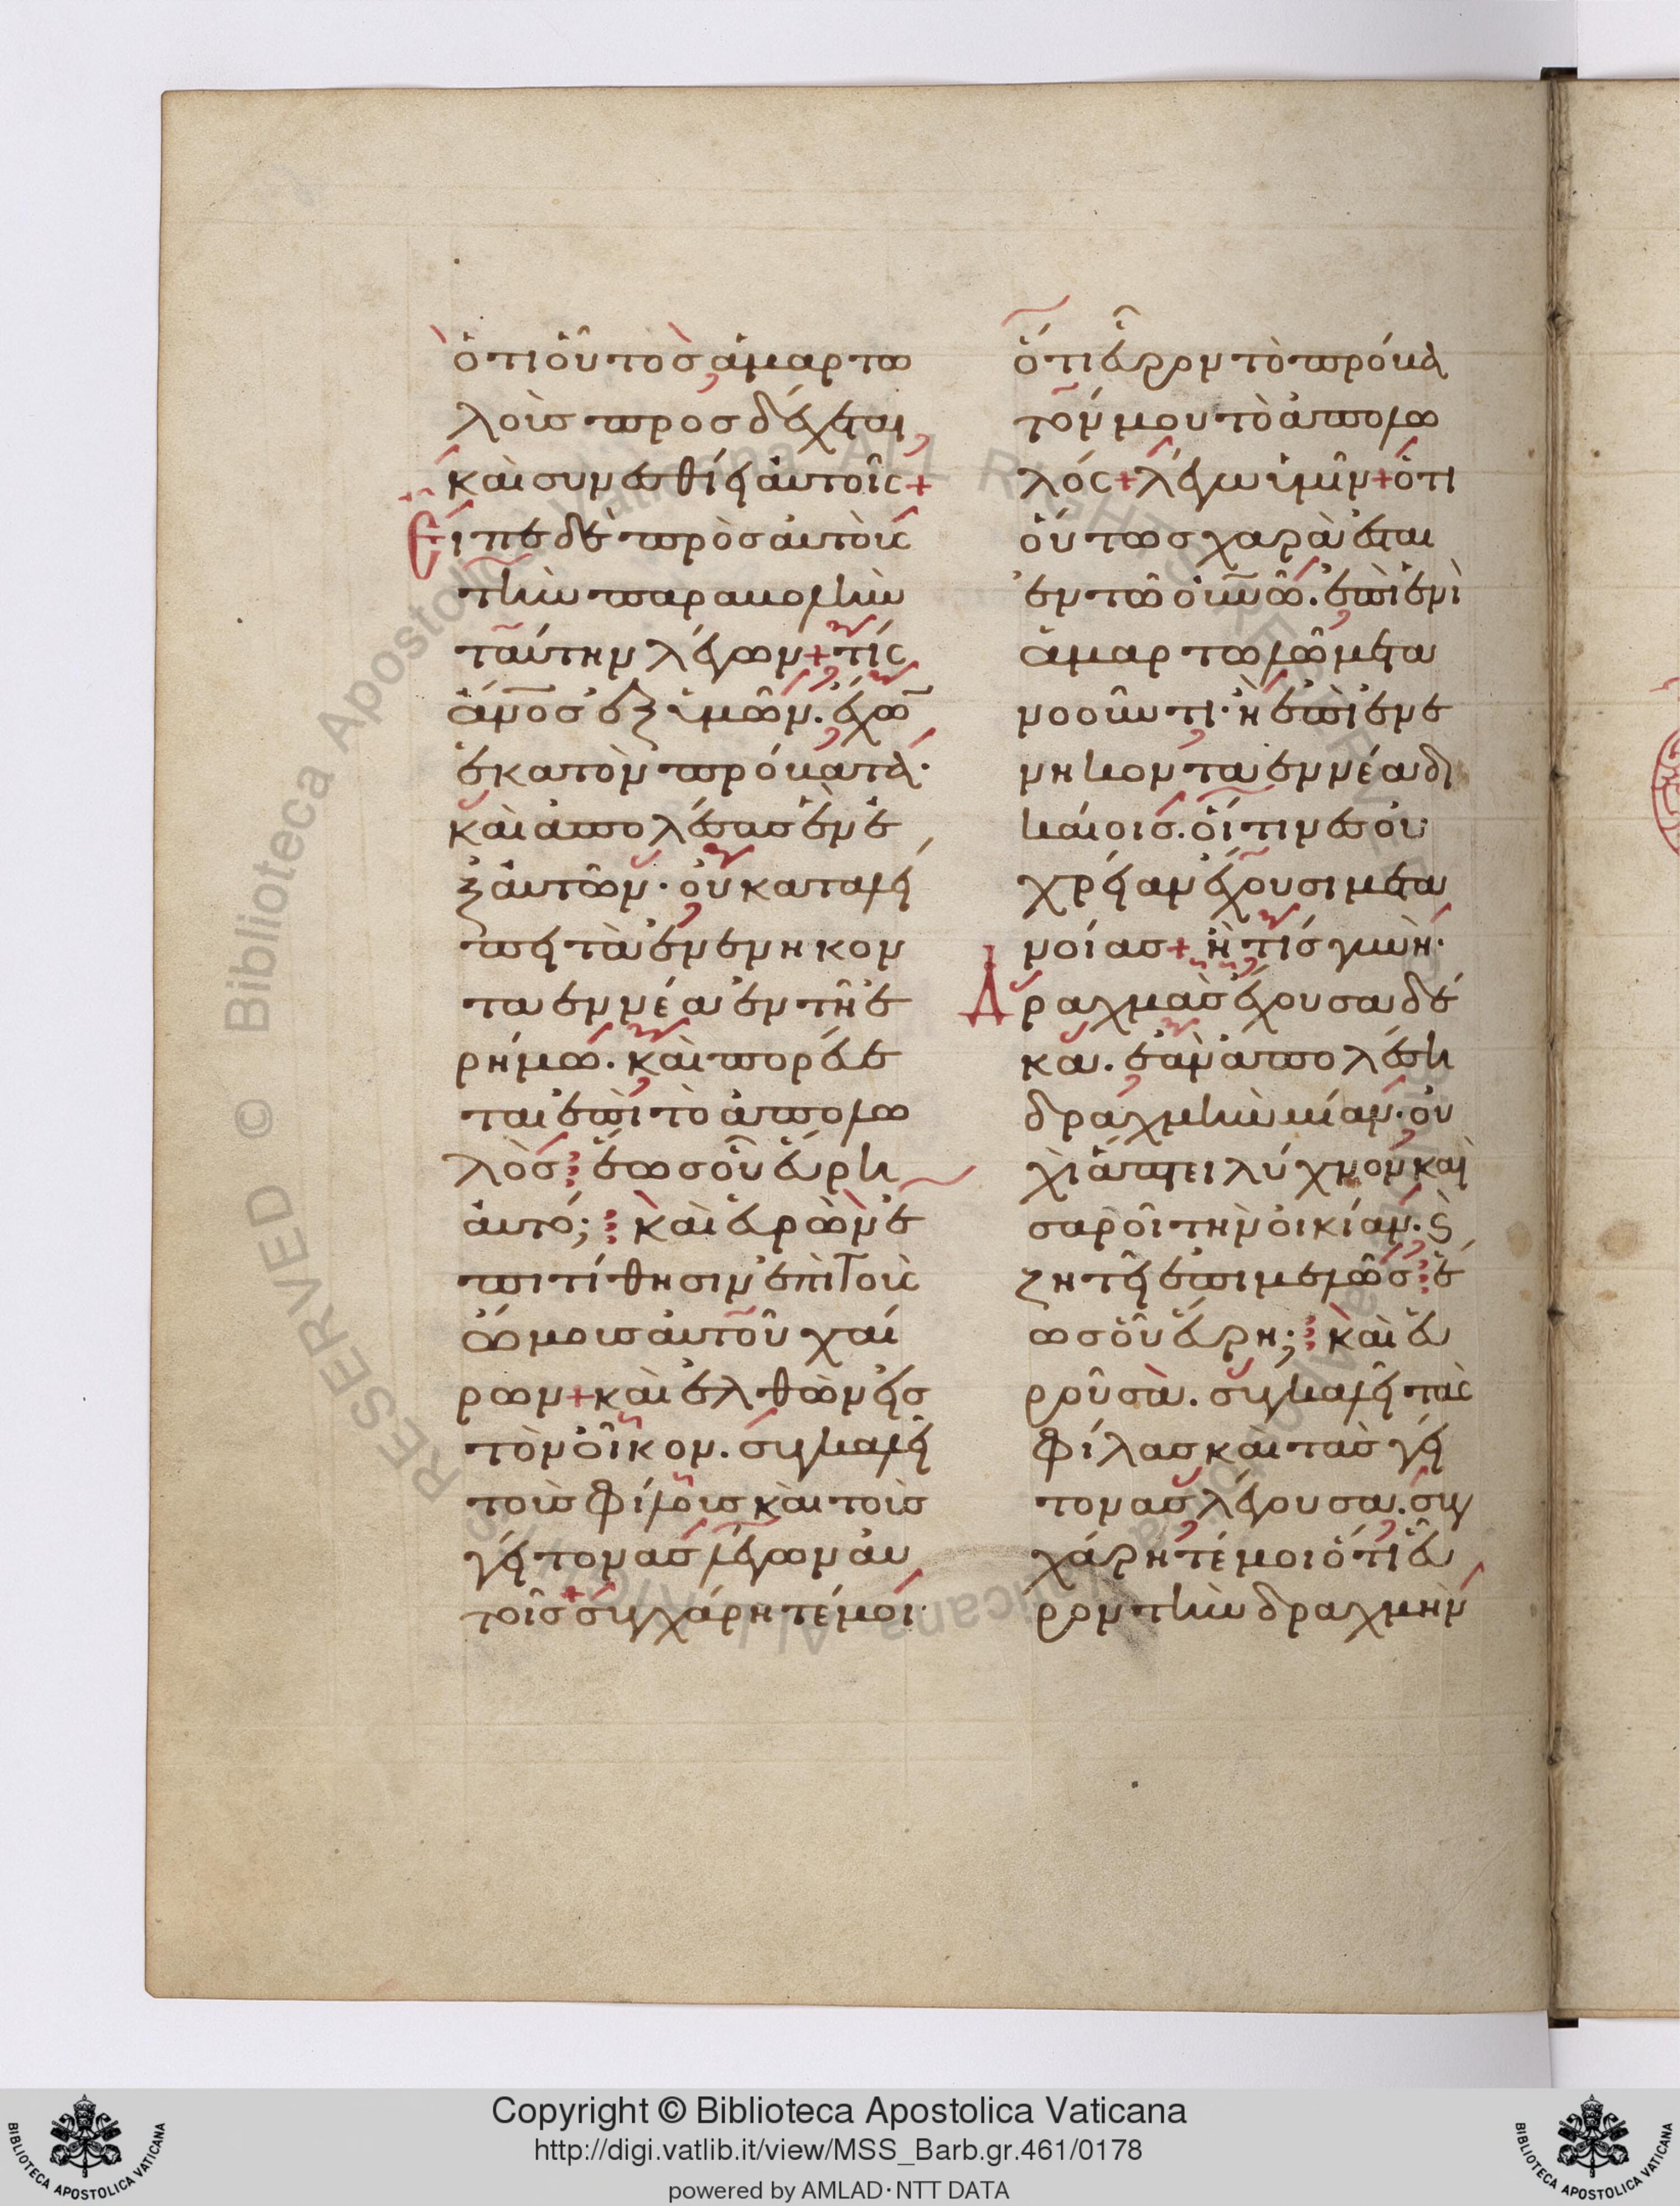 ὅτι οὗτος ἁμαρτω
λοὺσ προσδέχεται
καὶ συνεσθίει αὐτοῖς +
Εἶπε δὲ πρὸσ αὐτοὺς
τὴν παραβολὴν
ταύτην λέγων + τίς
ἄνοσ ἐξ ὑμῶν. ἔχω̅
ἑκατὸν πρόβατα·
καὶ ἀπολέσασ ἓν ἐ
ξ αὐτῶν· οὐ καταλεί
πει τὰ ἐνενηκον
τα εννέα ἐν τῆ ἐ
ρήμω. καὶ πορεύε
ται ἐπὶ τὸ ἀπολω
λὸσ ⁝ ἕωσ οὗ εὕρη
ἀυτό; ⁝ καὶ εὑρὼν ἐ
πιτίθησιν ἐπὶ τοὺς
ὤμουσ αὐτοῦ χαί
ρων + καὶ ἐλθὼν εἰσ
τὸν οἶκον. συγκαλεῖ
τοὺσ φίλουσ καὶ τοὺσ
γείτονασ λέγων αὐ
τοῖσ + συγχάρητέ μοι·
ὅτι εὗρον τὸ πρόβα
τόν μου τὸ ἀπολω
λός + λέγω ὑμῖν + ὅτι
οὕτωσ χαρὰ ἔσται
ἐν τῶ οὐνῶ. ἐπὶ ἑνὶ
ἁμαρτωλῶ μετα
νοοῦντι· ἢ ἐπὶ ἐνε
νηκονταεννέα δι
καίοισ. οἵτινεσ οὐ
χρείαν ἔχουσι μετα
νοίασ + ἢ τίσ γυνὴ·
Δραχμὰσ ἔχουσα δέ
κα. ἐὰν ἀπολέση
δραχμὴν μίαν· οὐ
χὶ ἅπτει λύχνον καὶ
σαροῖ τὴν οἰκίαν. ϗ
ζητεῖ ἐπιμελῶσ ⁝ ἕ
ωσ οὗ εὕρη; ⁝ καὶ εὑ
ροῦσα. συγκαλεῖ τὰς
φίλασ και τὰσ γεί
τονασ λέγουσα. συγ
χάρητέ μοι ὅτι εὗ
ρον τὴν δραχμὴν
Copyright © Biblioteca Apostolica Vaticana
http://digi.vatlib.it/view/MSS_Barb.gr.461/0178
powered by AMLAD·NTT DATA